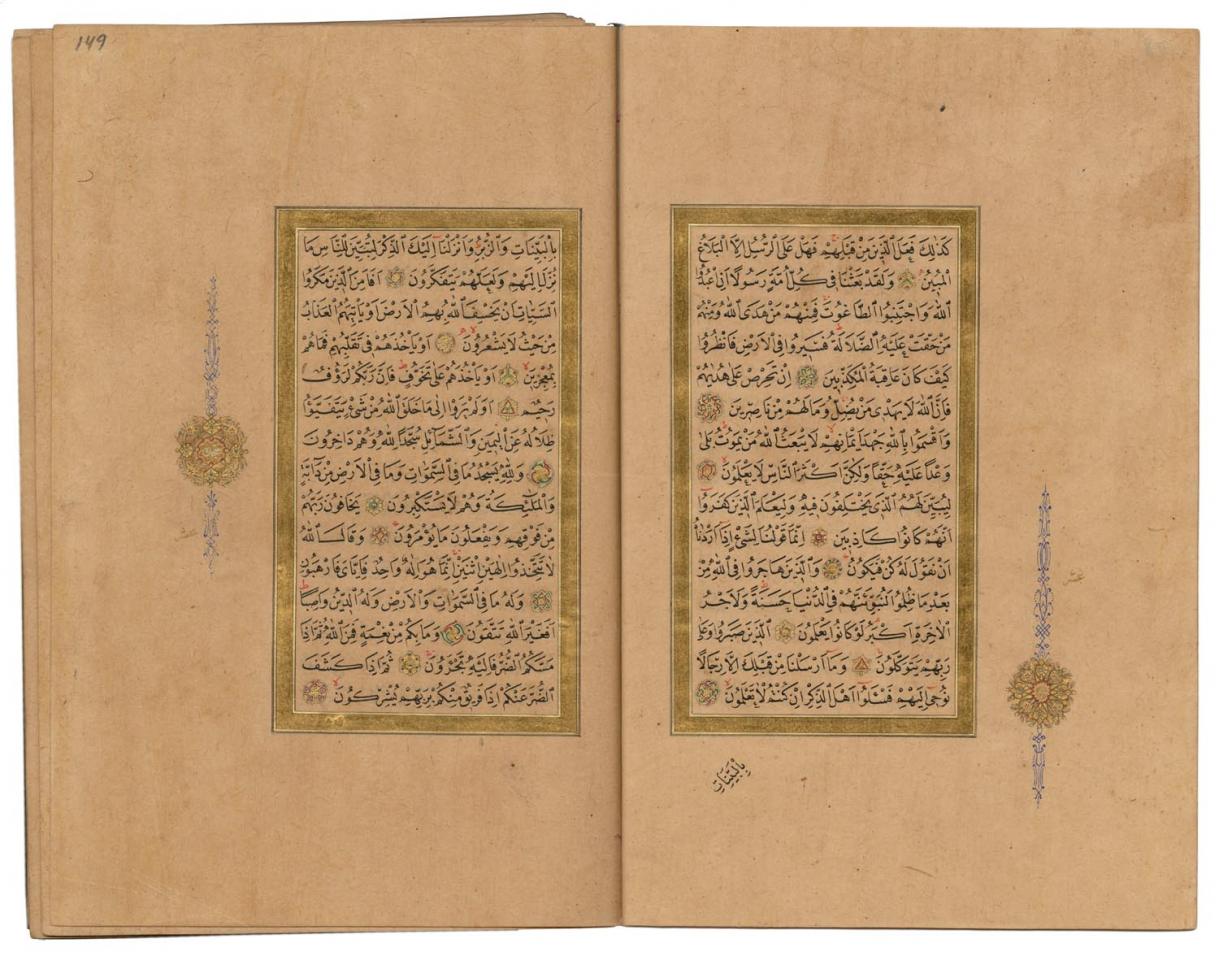 كَذٰلِكَ فَعَلَ الَّذِينَ مِنْ قَبْلِهِمْ فَهَلْ عَلَى الرُّسُلِ اِلَّا الْبَلَاغُ
الْمُبِينُ وَلَقَدْ بَعَثْنَا فِى كُلِّ اُمَّةٍ رَسُولًا اَنِ اعْبُدُوا
اللّٰهَ وَاجْتَنِبُوا الطَّاغُوتَ فَمِنْهُمْ مَنْ هَدَى اللّٰهُ وَمِنْهُمْ
مَنْ حَقَّتْ عَلَيْهِ الضَّلَالَةُ فَسِيرُوا فِى الْاَرْضِ فَانْظُرُوا
كَيْفَ كَانَ عَاقِبَةُ الْمُكَذِّبِينَ اِنْ تَحْرِصْ عَلٰى هُدٰيهُمْ
فَاِنَّ اللّٰهَ لَا يَهْدِى مَنْ يُضِلُّ وَمَا لَهُمْ مِنْ نَاصِرِينَ
وَاَقْسَمُوا بِاللّٰهِ جَهْدَ اَيْمَانِهِمْ لَا يَبْعَثُ اللّٰهُ مَنْ يَمُوتُ بَلٰى
وَعْدًا عَلَيْهِ حَقًّا وَلٰكِنَّ اَكْثَرَ النَّاسِ لَا يَعْلَمُونَ
لِيُبَيِّنَ لَهُمُ الَّذِى يَخْتَلِفُونَ فِيهِ وَلِيَعْلَمَ الَّذِينَ كَفَرُوا
اَنَّهُمْ كَانُوا كَاذِبِينَ اِنَّمَا قَوْلُنَا لِشَىْءٍ اِذَا اَرَدْنَاهُ
اَنْ نَقُولَ لَهُ كُنْ فَيَكُونُ وَالَّذِينَ هَاجَرُوا فِى اللّٰهِ مِنْ
بَعْدِ مَا ظُلِمُوا لَنُبَوِّئَنَّهُمْ فِى الدُّنْيَا حَسَنَةً وَلَاَجْرُ
الْاٰخِرَةِ اَكْبَرُ لَوْ كَانُوا يَعْلَمُونَ الَّذِينَ صَبَرُوا وَعَلٰى
رَبِّهِمْ يَتَوَكَّلُونَ وَمَا اَرْسَلْنَا مِنْ قَبْلِكَ اِلَّا رِجَالًا
نُوحِى اِلَيْهِمْ فَسْئَلُوا اَهْلَ الذِّكْرِ اِنْ كُنْتُمْ لَا تَعْلَمُونَ
بِالْبَيِّنَاتِ
149
بِالْبَيِّنَاتِ وَالزُّبُرِ وَاَنْزَلْنَا اِلَيْكَ الذِّكْرَ لِتُبَيِّنَ لِلنَّاسِ مَا
نُزِّلَ اِلَيْهِمْ وَلَعَلَّهُمْ يَتَفَكَّرُونَ اَفَاَمِنَ الَّذِينَ مَكَرُوا
السَّيِّاٰتِ اَنْ يَخْسِفَ اللّٰهُ بِهِمُ الْاَرْضَ اَوْ يَأْتِيَهُمُ الْعَذَابُ
مِنْ حَيْثُ لَا يَشْعُرُونَ اَوْ يَأْخُذَهُمْ فِى تَقَلُّبِهِمْ فَمَا هُمْ
بِمُعْجِزِينَ اَوْ يَأْخُذَهُمْ عَلٰى تَخَوُّفٍ فَاِنَّ رَبَّكُمْ لَرَؤُفٌ
رَحِيمٌ اَوَلَمْ يَرَوْا اِلٰى مَا خَلَقَ اللّٰهُ مِنْ شَىْءٍ يَتَفَيَّؤُا
ظِلَالُهُ عَنِ الْيَمِينِ وَالشَّمَائِلِ سُجَّدًا لِلّٰهِ وَهُمْ دَاخِرُونَ
وَلِلّٰهِ يَسْجُدُ مَا فِى السَّمٰوَاتِ وَمَا فِى الْاَرْضِ مِنْ دَابَّةٍ
وَالْمَلٰئِكَةُ وَهُمْ لَا يَسْتَكْبِرُونَ يَخَافُونَ رَبَّهُمْ
مِنْ فَوْقِهِمْ وَيَفْعَلُونَ مَا يُؤْمَرُونَ وَقَالَ اللّٰهُ
لَا تَتَّخِذُوا اِلٰهَيْنِ اثْنَيْنِ اِنَّمَا هُوَ اِلٰهٌ وَاحِدٌ فَاِيَّاىَ فَارْهَبُونِ
وَلَهُ مَا فِى السَّمٰوَاتِ وَالْاَرْضِ وَلَهُ الدِّينُ وَاصِبًا
اَفَغَيْرَ اللّٰهِ تَتَّقُونَ وَمَا بِكُمْ مِنْ نِعْمَةٍ فَمِنَ اللّٰهِ ثُمَّ اِذَا
مَسَّكُمُ الضُّرُّ فَاِلَيْهِ تَجْئَرُونَ ثُمَّ اِذَا كَشَفَ
الضُّرَّ عَنْكُمْ اِذَا فَرِيقٌ مِنْكُمْ بِرَبِّهِمْ يُشْرِكُونَ